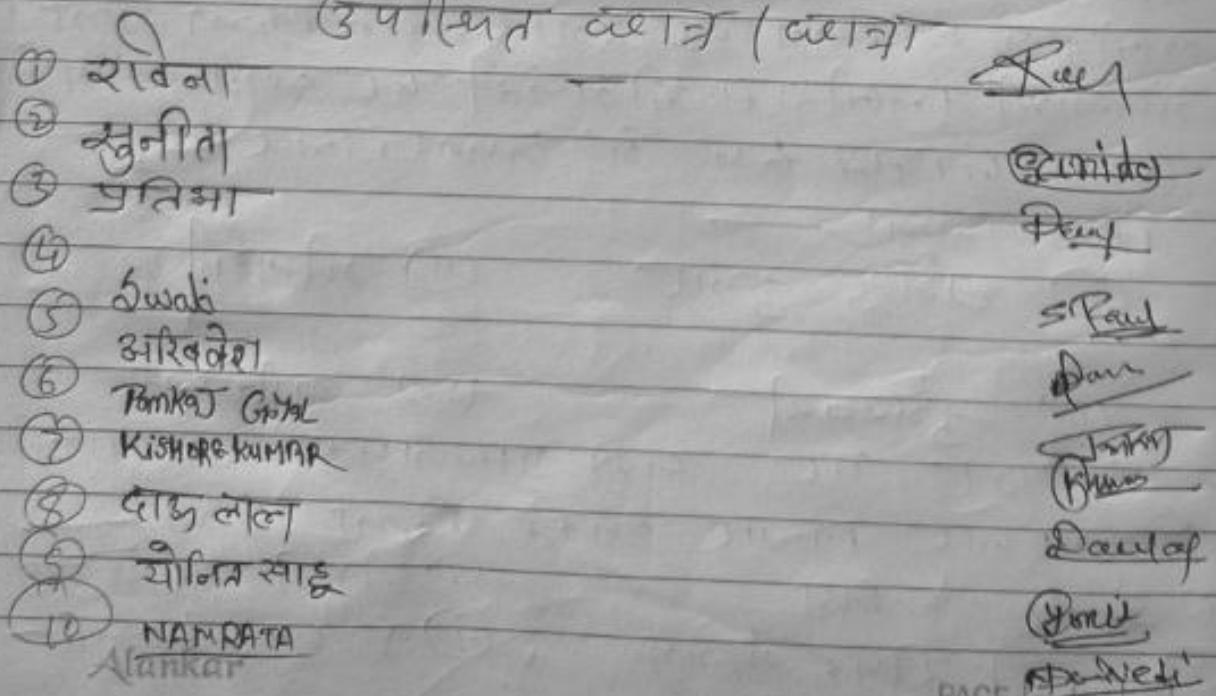 उपस्थित छात्र / छात्रा
① रविना
② सुनीता Sunida
③ प्रतिभा
④ Swati S Paul
⑤ अखिलेश
⑥ Pankaj Goyal
⑦ KISHORE KUMAR
⑧ दाऊ लाल Daulal
⑨ योनित साहू Yonit
10 NAMRATA Dwivedi
Alankar PAGE